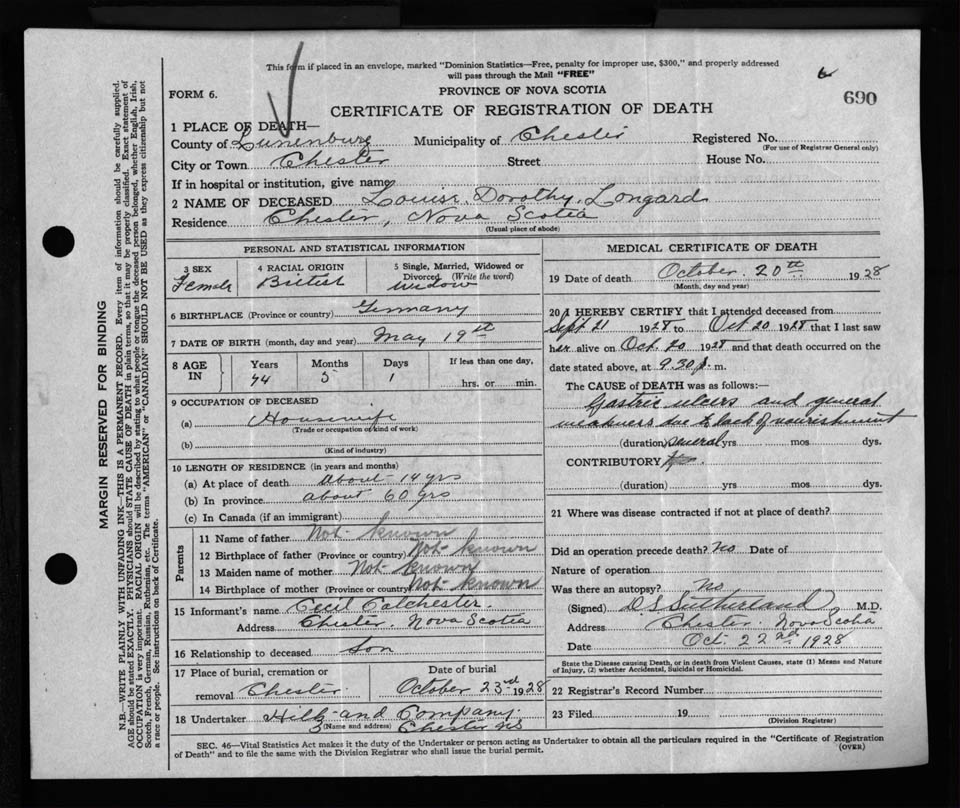 This form if placed in an envelope, marked "Dominion Statistics—Free, penalty for improper use, $300," and properly addressed
will pass through the Mail "FREE"
FORM 6.
PROVINCE OF NOVA SCOTIA
690
CERTIFICATE OF REGISTRATION OF DEATH
1 PLACE OF DEATH—
County of Lunenburg Municipality of Chester Registered No.
(For use of Registrar General only)
City or Town Chester Street House No.
If in hospital or institution, give name
2 NAME OF DECEASED Louise Dorothy Longard
Residence Chester, Nova Scotia
(Usual place of abode)
PERSONAL AND STATISTICAL INFORMATION
3 SEX 4 RACIAL ORIGIN 5 Single, Married, Widowed or Divorced (Write the word)
Female British Widow
6 BIRTHPLACE (Province or country) Germany
7 DATE OF BIRTH (month, day and year) May 19th
8 AGE IN Years Months Days If less than one day,
74 5 1 hrs. or min.
9 OCCUPATION OF DECEASED
(a) Housewife
(Trade or occupation or kind of work)
(b)
(Kind of industry)
10 LENGTH OF RESIDENCE (in years and months)
(a) At place of death about 14 yrs
(b) In province about 60 yrs
(c) In Canada (if an immigrant)
Parents
11 Name of father Not known
12 Birthplace of father (Province or country) Not known
13 Maiden name of mother Not known
14 Birthplace of mother (Province or country) Not known
15 Informant's name Cecil Colchester
Address Chester Nova Scotia
16 Relationship to deceased Son
17 Place of burial, cremation or removal Chester
Date of burial
October 23rd 1928
18 Undertaker Hilts and Company
(Name and address) Chester NS
MEDICAL CERTIFICATE OF DEATH
19 Date of death October 20th 1928
(Month, day and year)
20 I HEREBY CERTIFY that I attended deceased from
Sept 21 1928 to Oct 20 1928 that I last saw
her alive on Oct 20 1928 and that death occurred on
date stated above, at 9.30 p. m.
The CAUSE of DEATH was as follows:—
Gastric ulcers and general
weakness due to lack of nourishment
(duration) several yrs mos dys.
CONTRIBUTORY
(duration) yrs mos dys.
21 Where was disease contracted if not at place of death?
Did an operation precede death? No Date of
Nature of operation
Was there an autopsy? No
(Signed) D S Sutherland, M.D.
Address Chester Nova Scotia
Date Oct 22nd 1928
State the Disease causing Death, or in death from Violent Causes, state (1) Means and Nature
of Injury, (2) whether Accidental, Suicidal or Homicidal.
22 Registrar's Record Number
23 Filed 19
(Division Registrar)
SEC. 46—Vital Statistics Act makes it the duty of the Undertaker or person acting as Undertaker to obtain all the particulars required in the "Certificate of Registration
of Death" and to file the same with the Division Registrar who shall issue the burial permit.
(OVER)
MARGIN RESERVED FOR BINDING
N.B.—WRITE PLAINLY WITH UNFADING INK—THIS IS A PERMANENT RECORD. Every item of information should be carefully supplied.
AGE should be stated EXACTLY. PHYSICIANS should STATE CAUSE OF DEATH in plain terms, so that it may be properly classified. Exact statement of
OCCUPATION is very important. RACIAL ORIGIN will be described by stating to what people or tongue the deceased person belonged, whether English, Irish,
Scotch, French, German, Russian, Ruthenian, etc. The terms "AMERICAN" or "CANADIAN" SHOULD NOT BE USED as they express citizenship but not
a race or people. See instructions on back of Certificate.